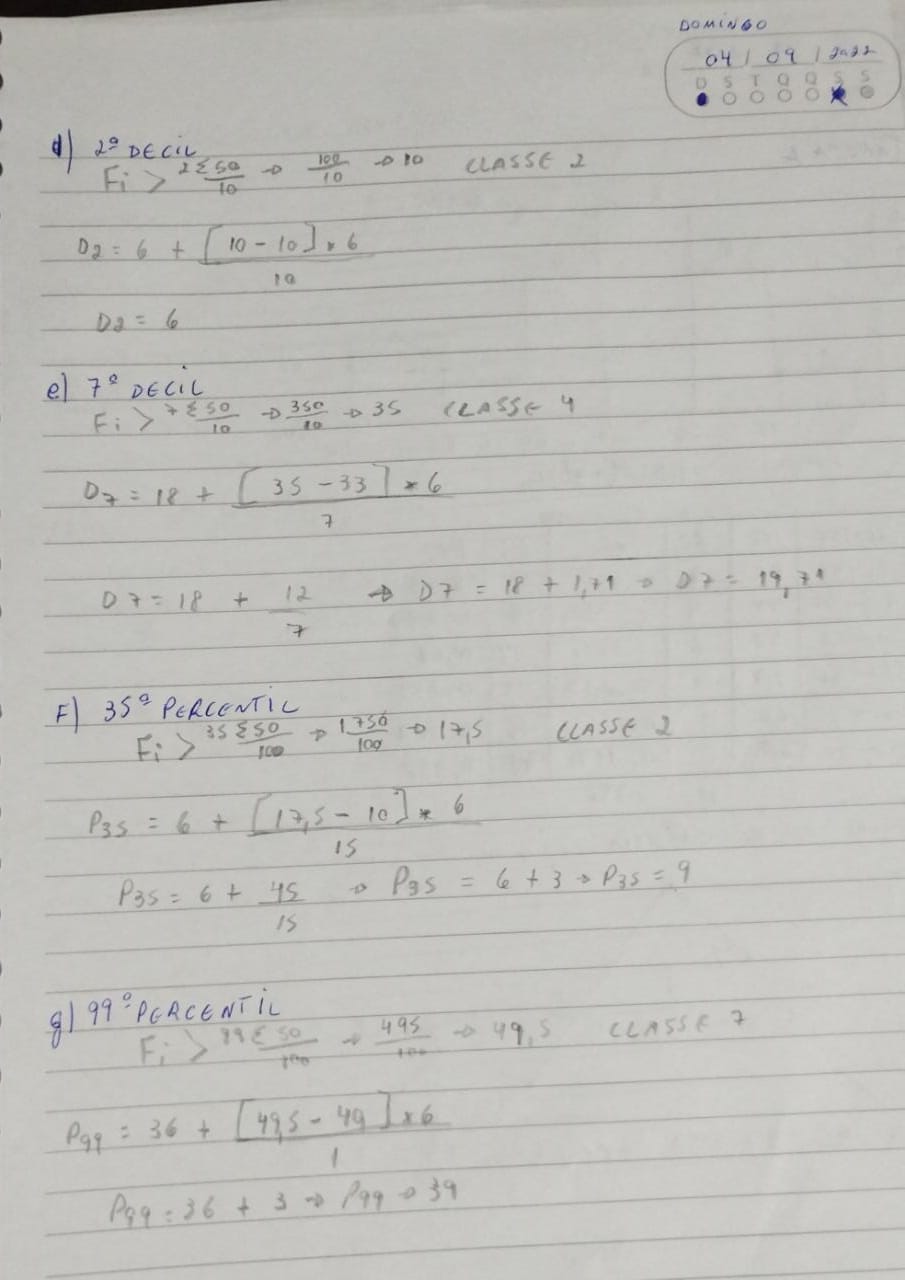 DOMINGO
04 / 09 / 2022
D S T Q Q S S
d) 2º DECIL
Fi > 2 Σ 50/10 → 100/10 → 10 CLASSE 2
D2 = 6 + [10 - 10] * 6
10
D2 = 6
e) 7º DECIL
Fi > 7 Σ 50/10 → 350/10 → 35 CLASSE 4
D7 = 18 + [35 - 33] * 6
7
D7 = 18 + 12/7 → D7 = 18 + 1,71 → D7 = 19,71
F) 35º PERCENTIL
Fi > 35 Σ 50/100 → 1750/100 → 17,5 CLASSE 2
P35 = 6 + [17,5 - 10] * 6
15
P35 = 6 + 45/15 → P35 = 6 + 3 → P35 = 9
g) 99º PERCENTIL
Fi > 99 Σ 50/100 → 495/100 → 49,5 CLASSE 7
P99 = 36 + [49,5 - 49] * 6
1
P99 = 36 + 3 → P99 → 39